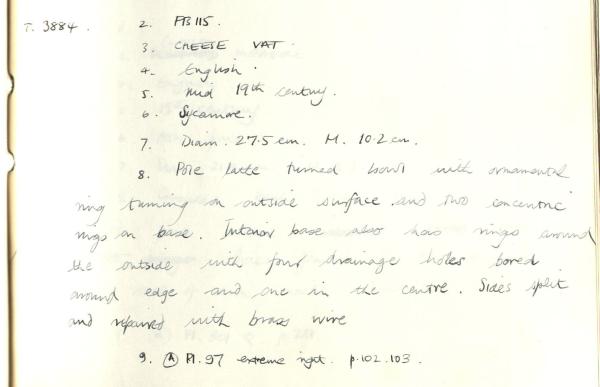 T. 3884. 2. FB 115.
3. CHEESE VAT.
4. English.
5. mid 19th century.
6. Sycamore.
7. Diam. 27.5 cm. H. 10.2 cm.
8. Pole latte turned bowl with ornamental
ring turning on outside surface and two concentric
rings on base. Interior base also has rings around
the outside with four drainage holes bored
around edge and one in the centre. Sides split
and repaired with brass wire
9. Ⓐ Pl. 97 extreme right. p. 102. 103.